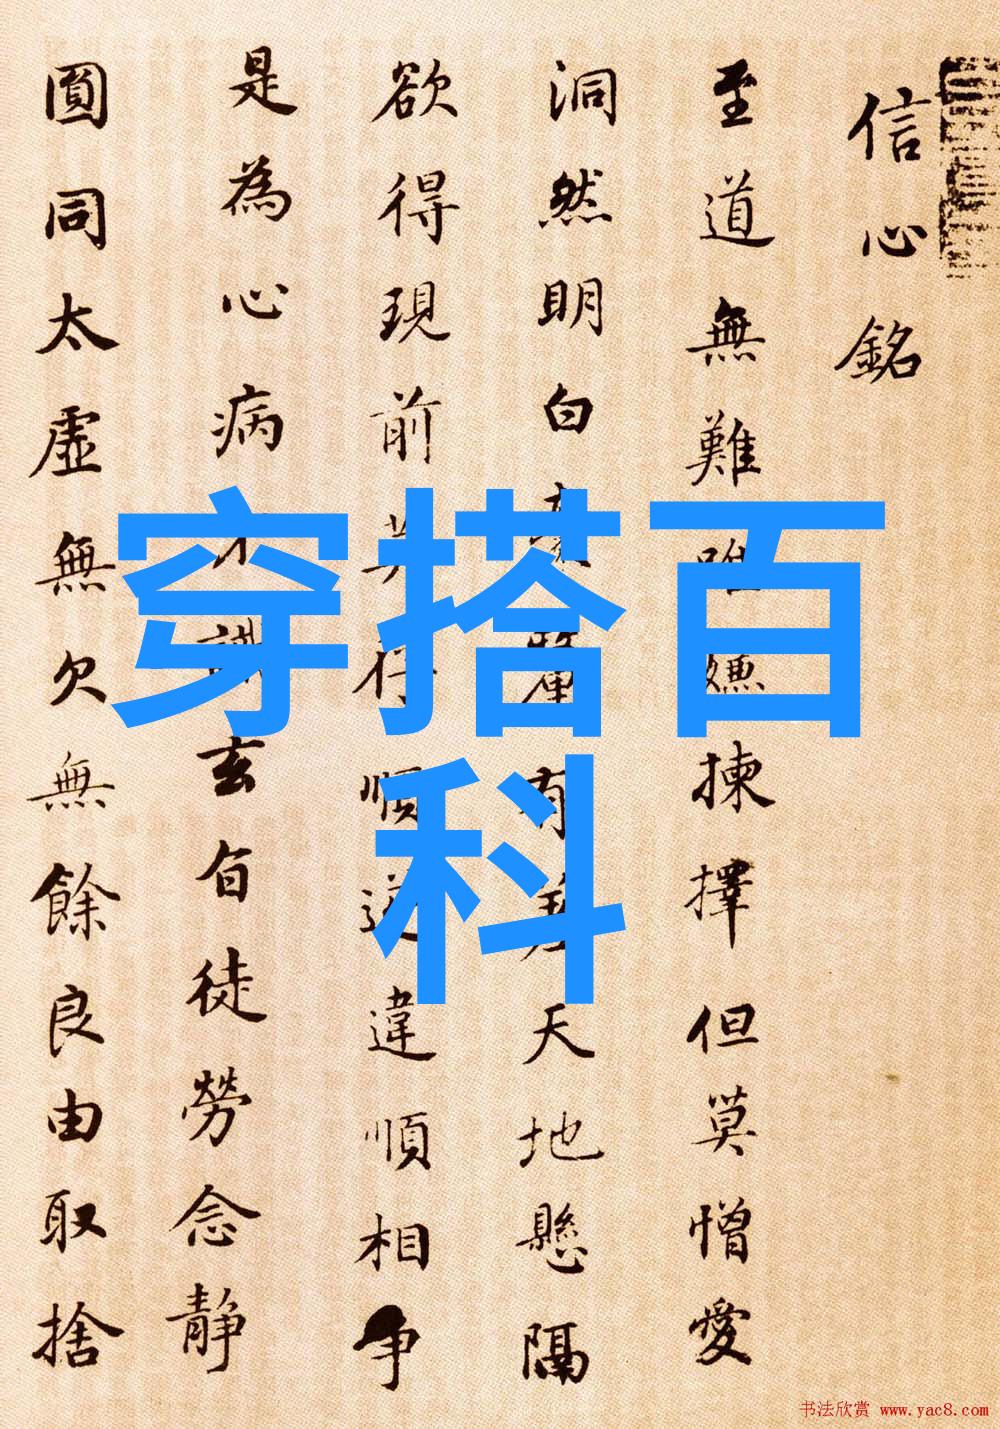 信心銘
至道無難唯嫌揀擇但莫憎愛
洞然明白毫釐有差天地懸隔
欲得現前莫存順逆違順相争
是為心病不識玄旨徒勞念静
圓同太虚無欠無餘良由取捨
穿搭百
科
书法欣赏 www.yac8.com